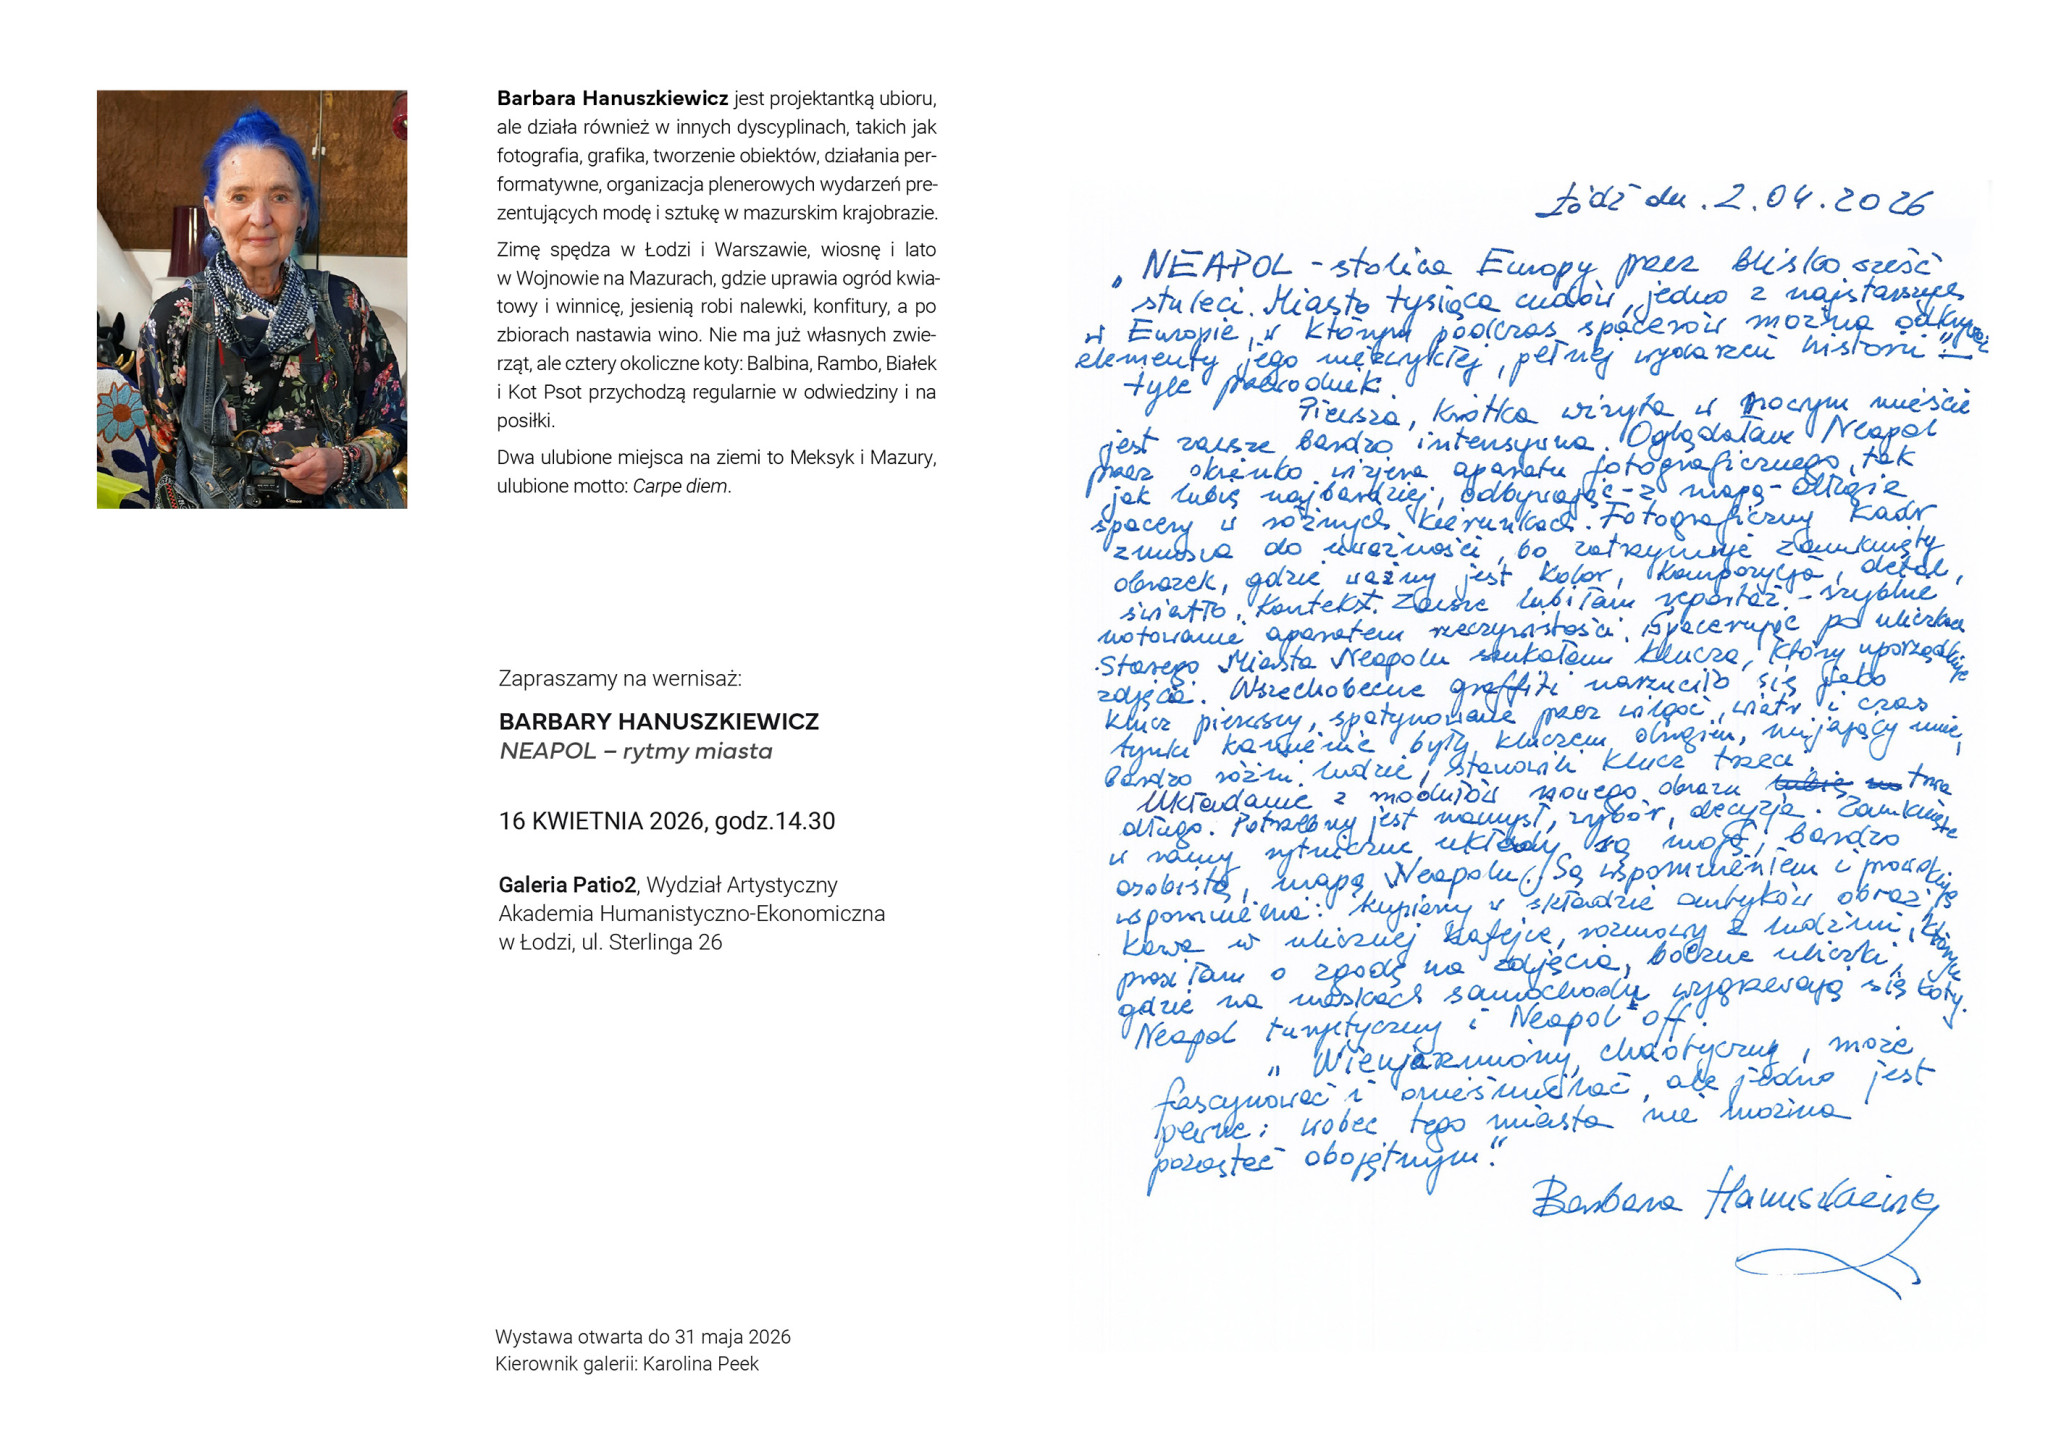 Barbara Hanuszkiewicz jest projektantką ubioru,
ale działa również w innych dyscyplinach, takich jak
fotografia, grafika, tworzenie obiektów, działania per-
formatywne, organizacja plenerowych wydarzeń pre-
zentujących modę i sztukę w mazurskim krajobrazie.
Zimę spędza w Łodzi i Warszawie, wiosnę i lato
w Wojnowie na Mazurach, gdzie uprawia ogród kwia-
towy i winnicę, jesienią robi nalewki, konfitury, a po
zbiorach nastawia wino. Nie ma już własnych zwie-
rząt, ale cztery okoliczne koty: Balbina, Rambo, Białek
i Kot Psot przychodzą regularnie w odwiedziny i na
posiłki.
Dwa ulubione miejsca na ziemi to Meksyk i Mazury,
ulubione motto: Carpe diem.
Zapraszamy na wernisaż:
BARBARY HANUSZKIEWICZ
NEAPOL – rytmy miasta
16 KWIETNIA 2026, godz.14.30
Galeria Patio2, Wydział Artystyczny
Akademia Humanistyczno-Ekonomiczna
w Łodzi, ul. Sterlinga 26
Wystawa otwarta do 31 maja 2026
Kierownik galerii: Karolina Peek
Łódź dn. 2.04.2026
„NEAPOL – stolica Europy przez blisko sześć
stuleci. Miasto tysiąca cudów, jedno z najstarszych
w Europie, w którym podczas spacerów można odkrywać
elementy jego niezwykłej, pełnej wydarzeń historii" –
tyle przewodnik.
Pierwsza, krótka wizyta w nocnym mieście
jest zawsze bardzo intensywna. Oglądałam Neapol
przez okienko wizjera aparatu fotograficznego, tak
jak lubię najbardziej, odbywając – z mapą – długie
spacery w różnych kierunkach. Fotograficzny kadr
zmusza do uważności, bo zatrzymuje zamknięty
obrazek, gdzie ważny jest kolor, kompozycja, detal,
światło, kontekst. Zawsze lubiłam reportaż – szybkie
notowanie aparatem rzeczywistości. Spacerując po uliczkach
Starego Miasta Neapolu szukałam klucza, który uporządkuje
zdjęcia. Wszechobecne graffiti narzuciło się jako
klucz pierwszy, spatynowane przez wilgoć, wiatr i czas
tynki kamienic były kluczem drugim, mijający mnie,
bardzo różni ludzie, stanowili klucz trzeci.
Układanie z modułów nowego obrazu trwa
długo. Potrzebny jest namysł, wybór, decyzja. Zamknięte
w ramy rytmiczne układy są moją, bardzo
osobistą, mapą Neapolu. Są wspomnieniem i prowokują
wspomnienia: kupiony w składzie antyków obraz,
kawa w ulicznej kafejce, rozmowy z ludźmi, których
prosiłam o zgodę na zdjęcia, boczne uliczki,
gdzie na maskach samochodu wygrzewają się koty.
Neapol turystyczny i Neapol off.
„Wieloznaczny, chaotyczny, może
fascynować i onieśmielać, ale jedno jest
pewne: wobec tego miasta nie można
pozostać obojętnym."
Barbara Hanuszkiewicz